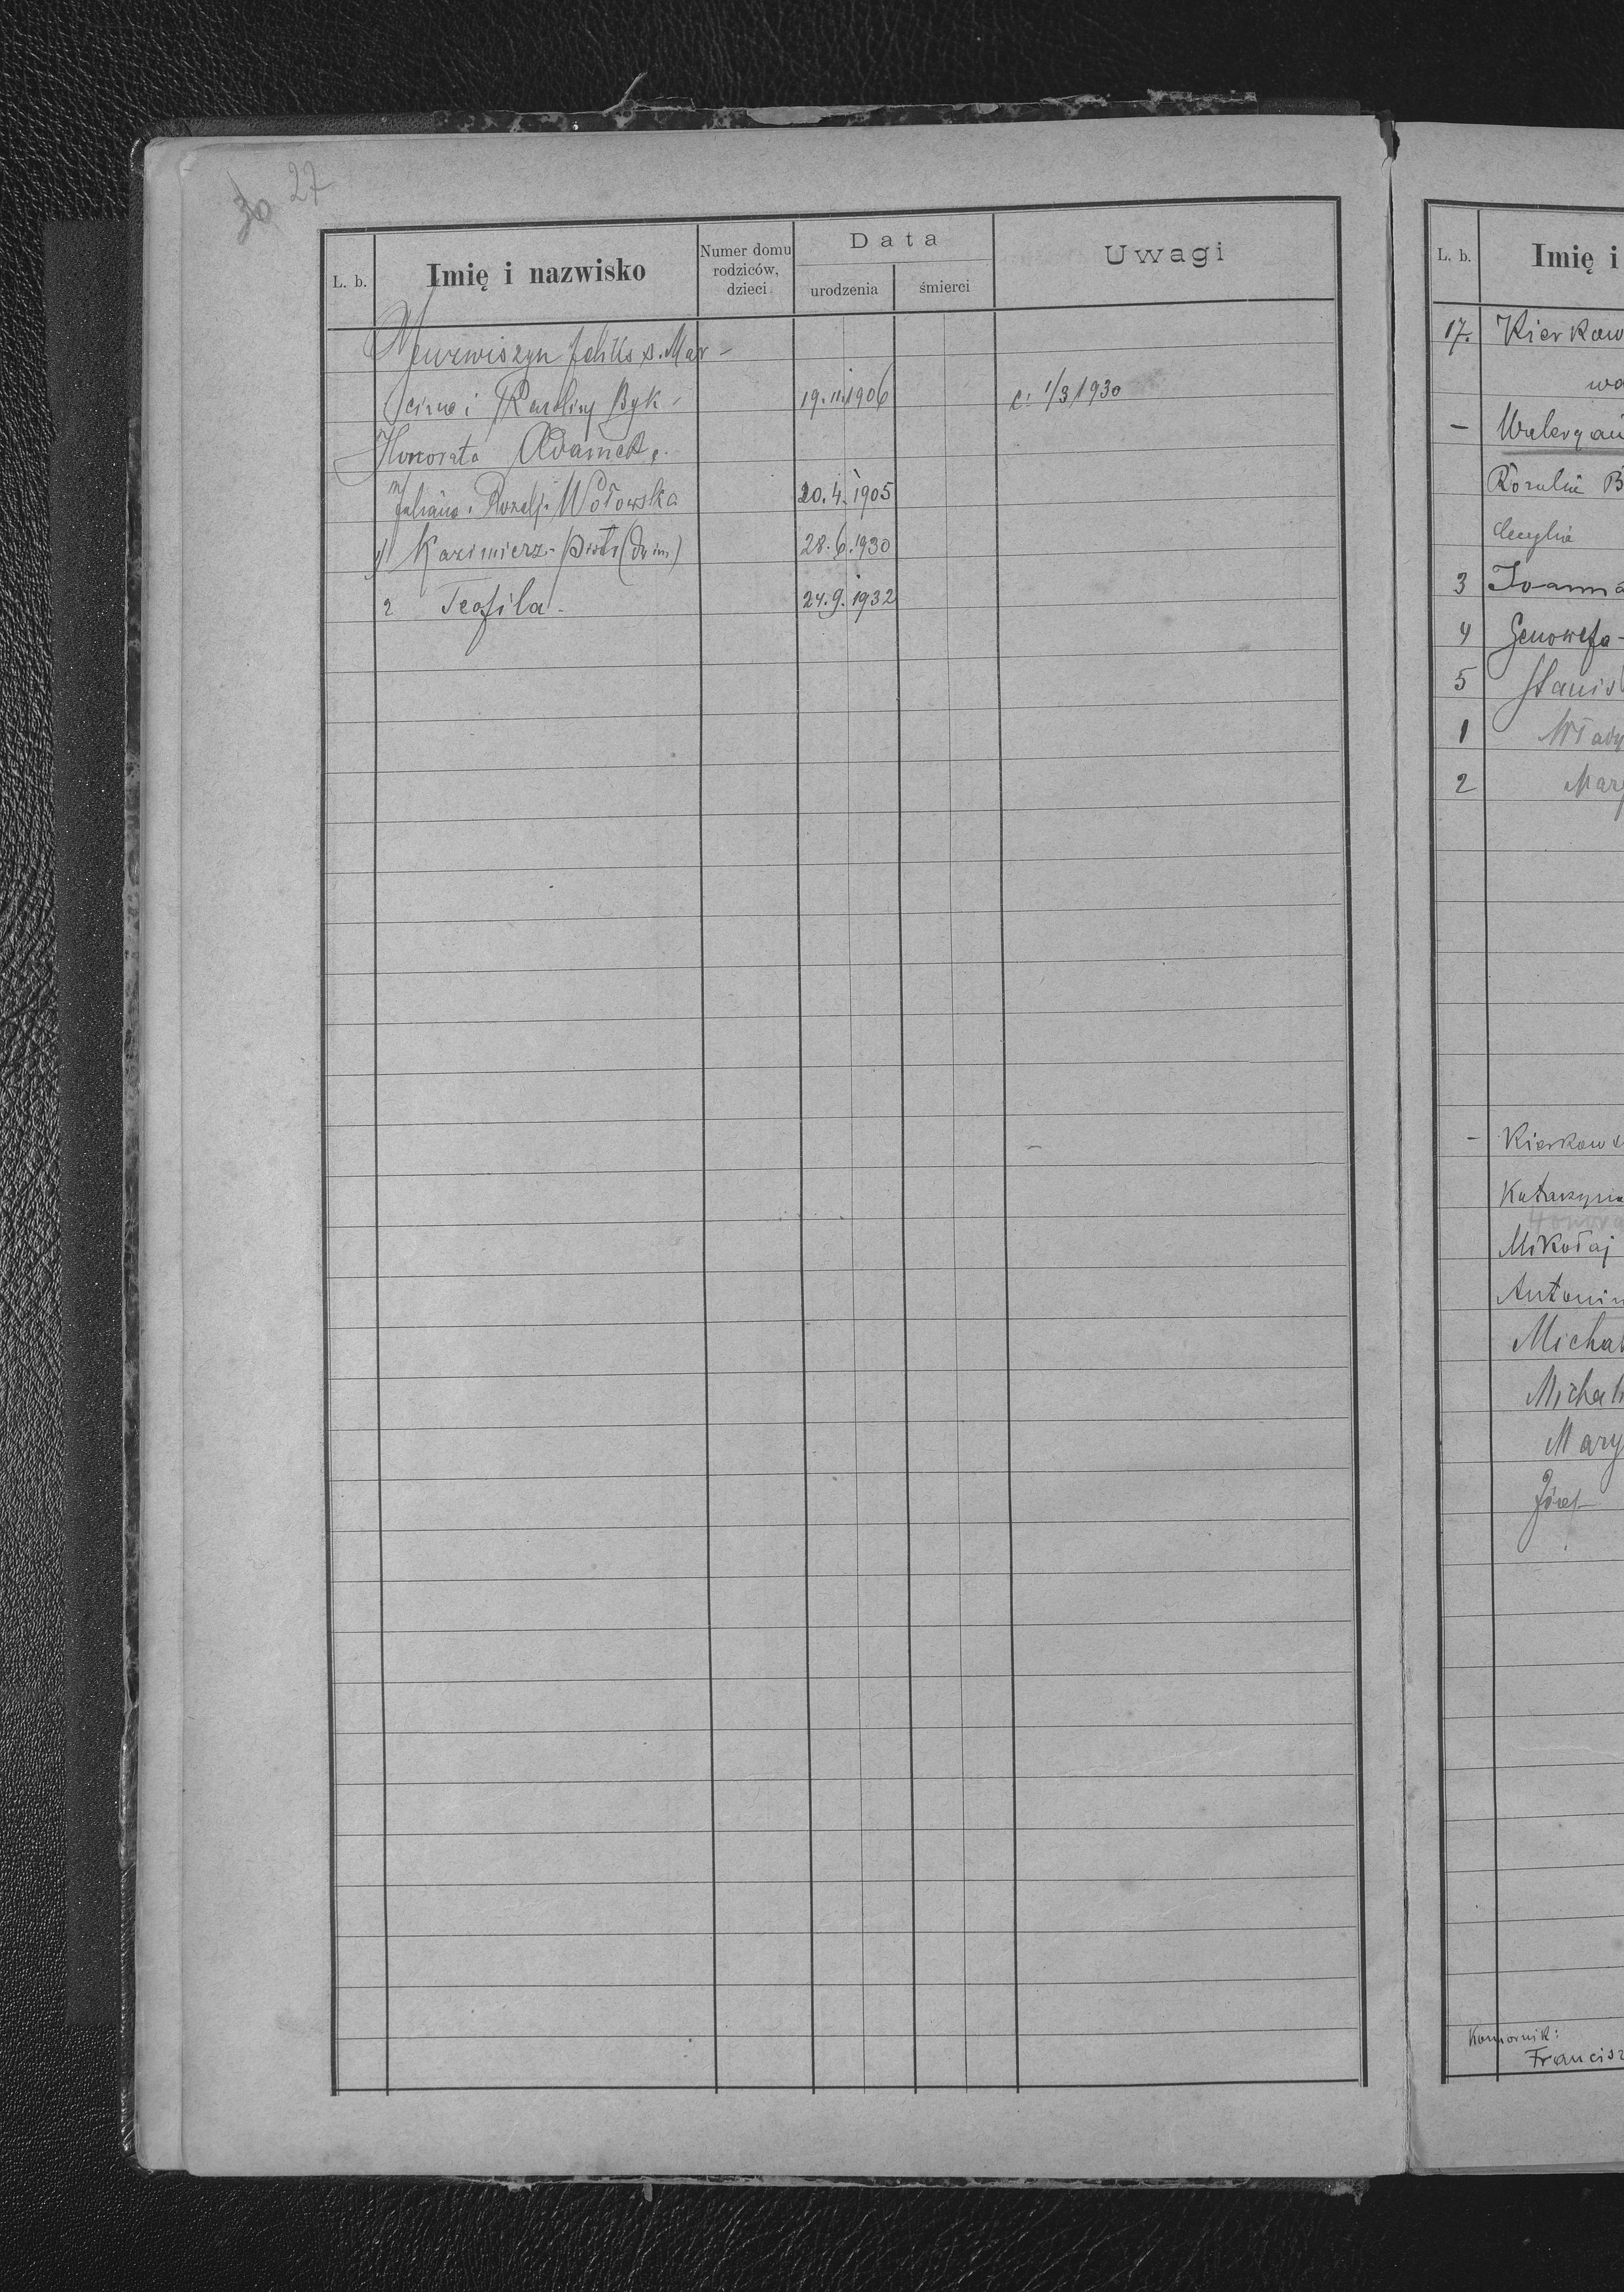 30 27
L. b. Imię i nazwisko Numer domu rodziców, dzieci Data urodzenia śmierci Uwagi
Feliks s. Mar-
cina i Karoliny Byk 19.11.1906 1/3 1930
Honorata Adamek c.
Juliana i Rozalji Wołowska 20.4.1905
1) Kazimierz-Piotr (dw im) 28.6.1930
2 Teofila 24.9.1932
L. b. Imię i
17. Kierkow
wa
— Waleryan
Rozalia B
Cecylia
3 Joanna
4 Genowefa-
5 Stanis
1 Włady
2 Mary
- Kierkows
Katarzyna
Honora
Mikołaj
Antonin
Michał
Michał
Mary
Józef
Komornik:
Francisz